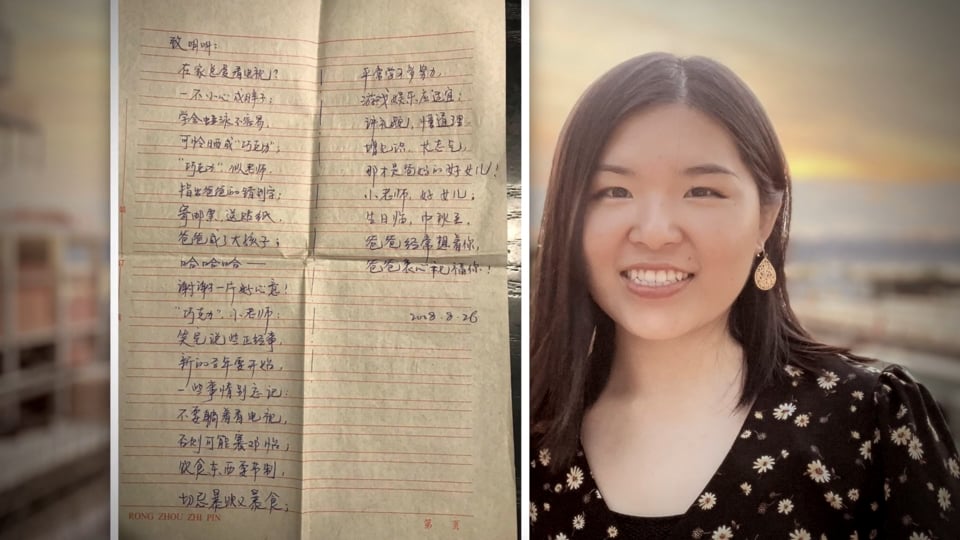 致
在家总爱看电视?
一不小心成胖子;
学会蛙泳不容易,
可怜晒成"巧克力";
"巧克力"似老师,
指出爸爸的错别字;
寄邮票,送贴纸,
爸爸成了大孩子;
哈哈哈——
谢谢一片好心意!
"巧克力"小老师:
笑完说些正经事,
新的学年要开始,
一些事情别忘记:
不要躺着看电视,
否则可能
饮食东西要节制,
切忌暴饮又暴食;
平常学习多努力,
游戏娱乐应适宜;
讲礼貌,懂道理,
增知识,长志气,
那才是爸妈的好女儿!
小老师,好女儿;
生日临,中秋至,
爸爸经常想着你,
爸爸衷心祝福你!
2008.8.26
RONG ZHOU ZHI PIN
第 页